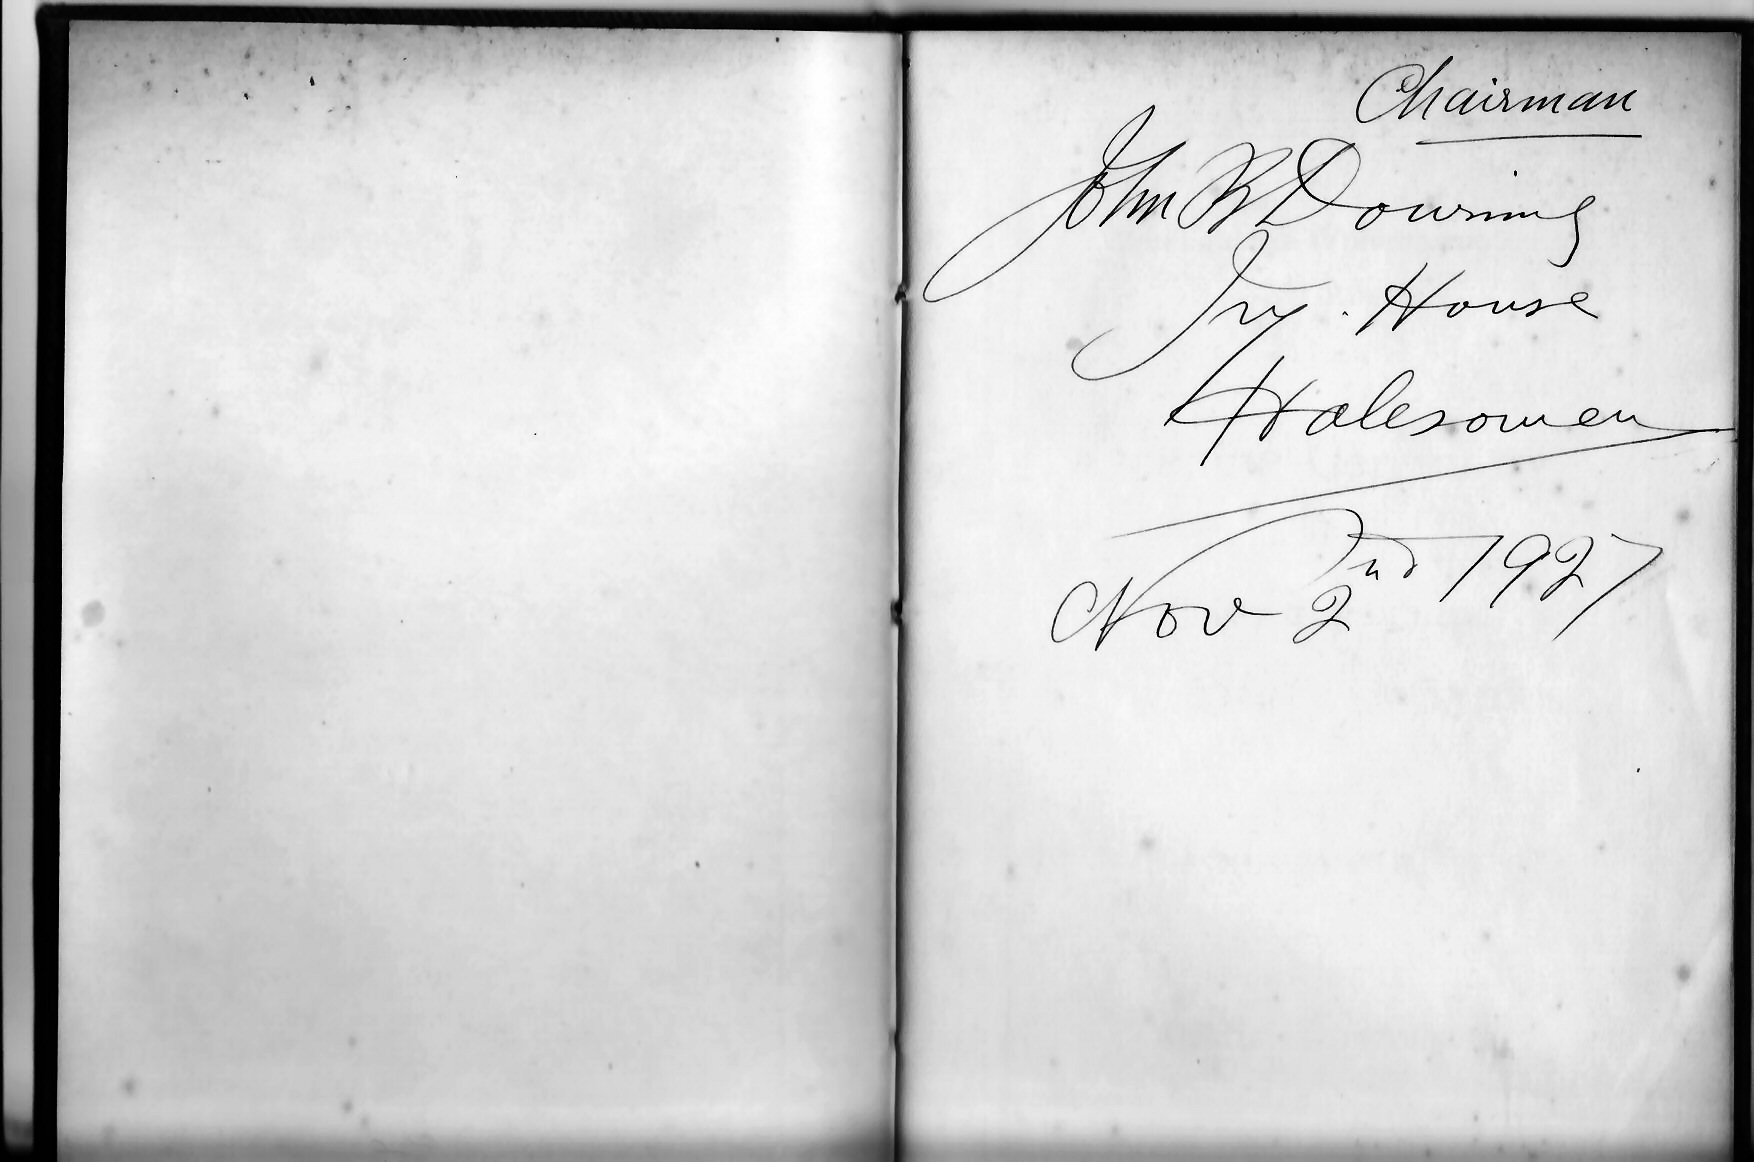 Chairman
John B Downing
Ivy. House
Halesowen
Nov 2nd 1927